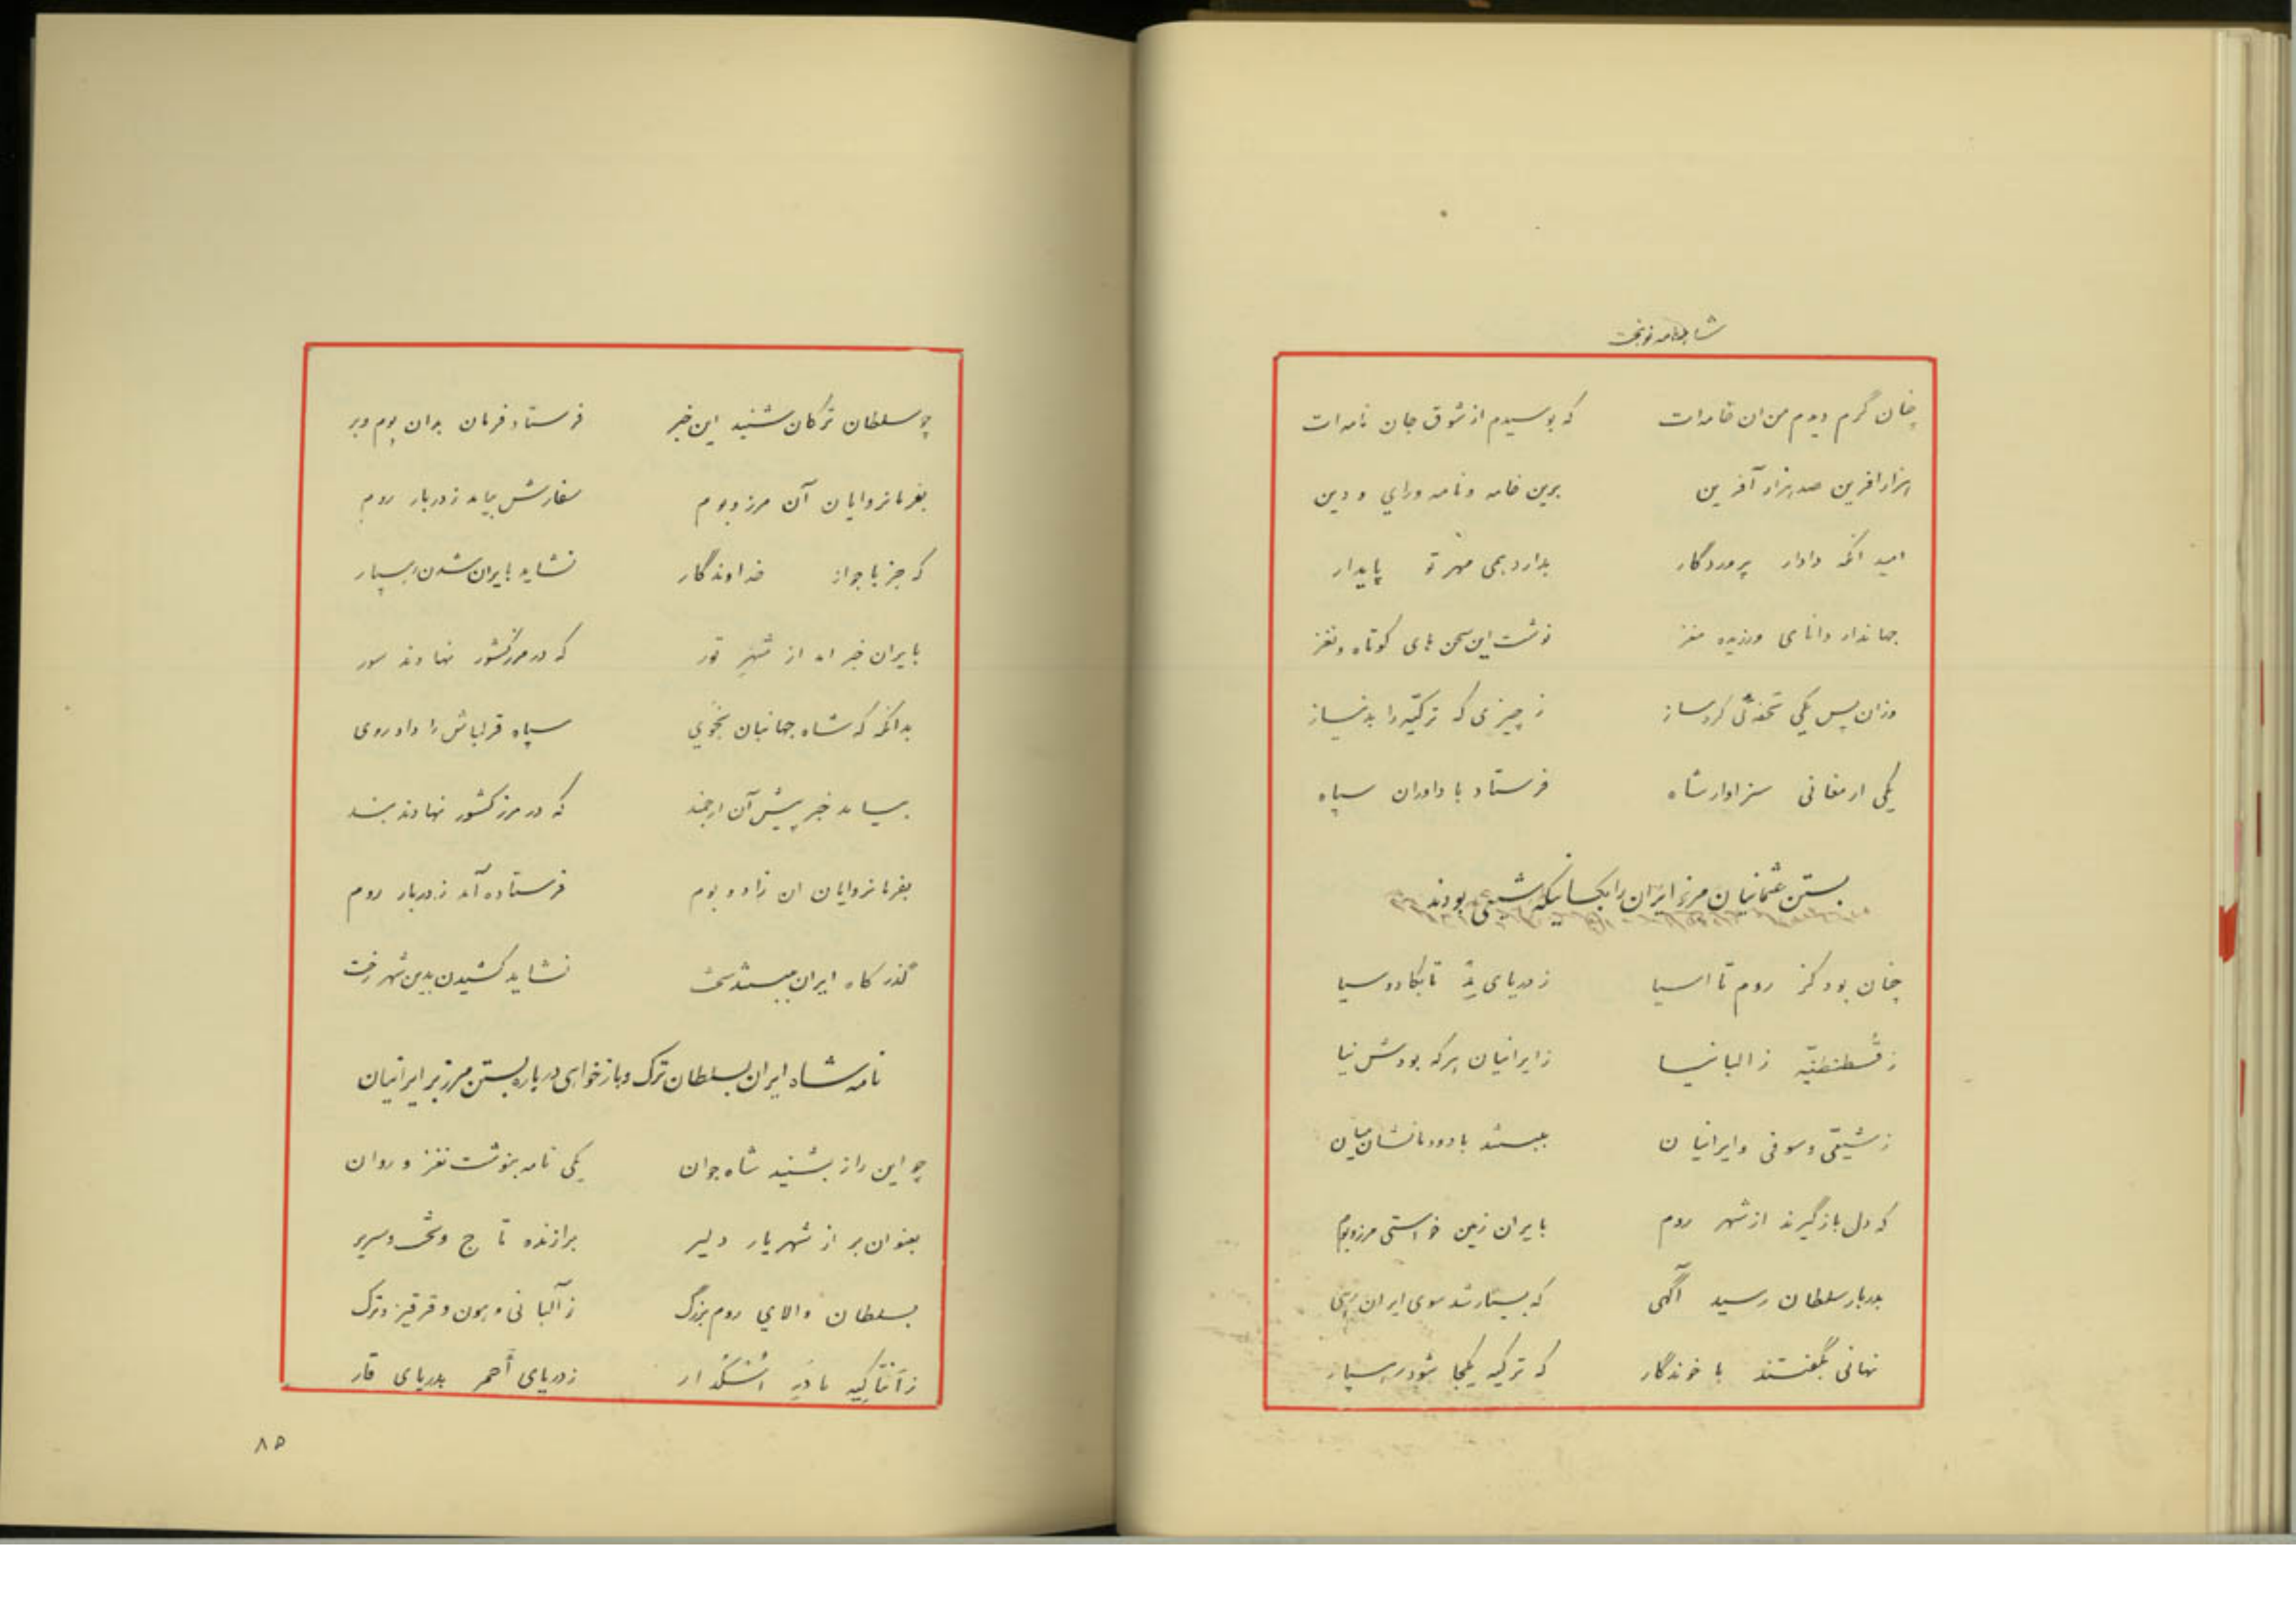 شاهنامه نوبخت
چنان گرم دیدم من ان خامه‌ات که بوسیدم از شوق جان نامه‌ات
هزار افرین صد هزار آفرین برین خامه و نامه و رای و دین
امید انکه دادار پروردگار بدارد همی مهر تو پایدار
جهاندار دانای ورزیده مغز نوشت این سخن های کوتاه و نغز
وزان پس یکی تحفه‌ئی کرد ساز ز چیزی که ترکیّه را بد نیاز
یکی ارمغانی سزاوار شاه فرستاد با داوران سپاه
بستن عثمانیان مرز ایران را بکسانیکه شیعی بودند
چنان بود کز روم تا اسیا ز دریای تا
ز قسطنطنیّه ز البانیا ز ایرانیان هرکه بودش نیا
ز شیعی و صوفی و ایرانیان ببستند با دودمانشان میان
که دل بازگیرند از شهر روم بایران زمین خواستی مرز و بوم
بدربار سلطان رسید آگهی که بسیار شد سوی ایران رهی
نهانی بگفتند با خوندگار که ترکیه یکجا شود رهسپار
چو سلطان ترکان شنید این خبر فرستاد فرمان بدان بوم و بر
بفرمانروایان آن مرز و بوم سفارش بیامد ز دربار روم
که جز با جواز خداوندگار نشاید بایران شدن رهسپار
بایران خبر امد از شهر تور که در مرز کشور نهادند سور
بدانکه که شاه جهانبان بخوی سپاه قزلباش را داد روی
بیامد خبر پیش آن ارجمند که در مرز کشور نهادند بند
بفرمانروایان ان زاد و بوم فرستاده آمد ز دربار روم
گذرگاه ایران ببستند سخت نشاید کشیدن بدین شهر رخت
نامه شاه ایران بسلطان ترک و بازخواهی درباره بستن مرز بر ایرانیان
چو این راز بشنید شاه جوان یکی نامه بنوشت نغز و روان
بعنوان بر از شهریار دلیر برازنده تاج و تخت و سریر
بسلطان والای روم بزرگ ز آلبانی و هون و قرقیز و ترک
ز انتاکیه تا در ز دریای احمر بدریای قار
۸۵